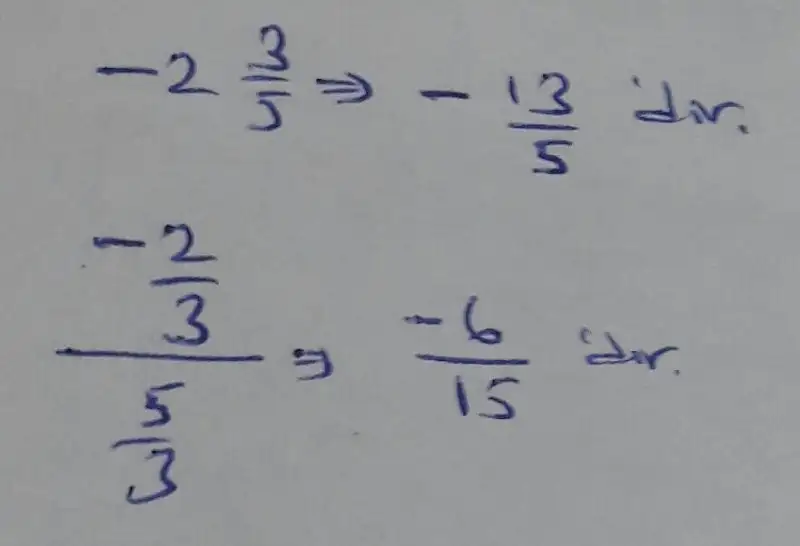 -2 3/5 ⇒ - 13/5 'dir.
(-2/3)/(5/3) ⇒ -6/15 'dir.